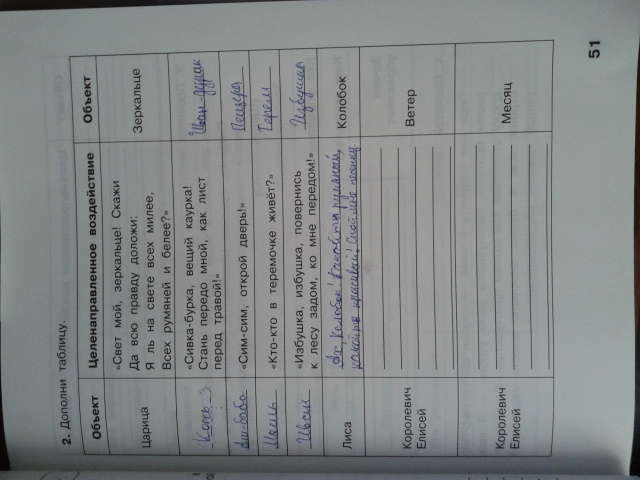 2. Дополни таблицу.
Объект
Целенаправленное воздействие
Объект
Царица
«Свет мой, зеркальце! Скажи
Да всю правду доложи:
Я ль на свете всех милее,
Всех румяней и белее?»
Зеркальце
«Сивка-бурка, вещий каурка!
Стань передо мной, как лист
перед травой!»
Иван-дурак
Али-баба
«Сим-сим, открой дверь!»
Пещера
«Кто-кто в теремочке живёт?»
Терем
Иван
«Избушка, избушка, повернись
к лесу задом, ко мне передом!»
Избушка
Лиса
Ах, Колобок! Какой ты румяный,
какой ты красивый! Спой мне песенку
Колобок
Королевич
Елисей
Ветер
Королевич
Елисей
Месяц
51